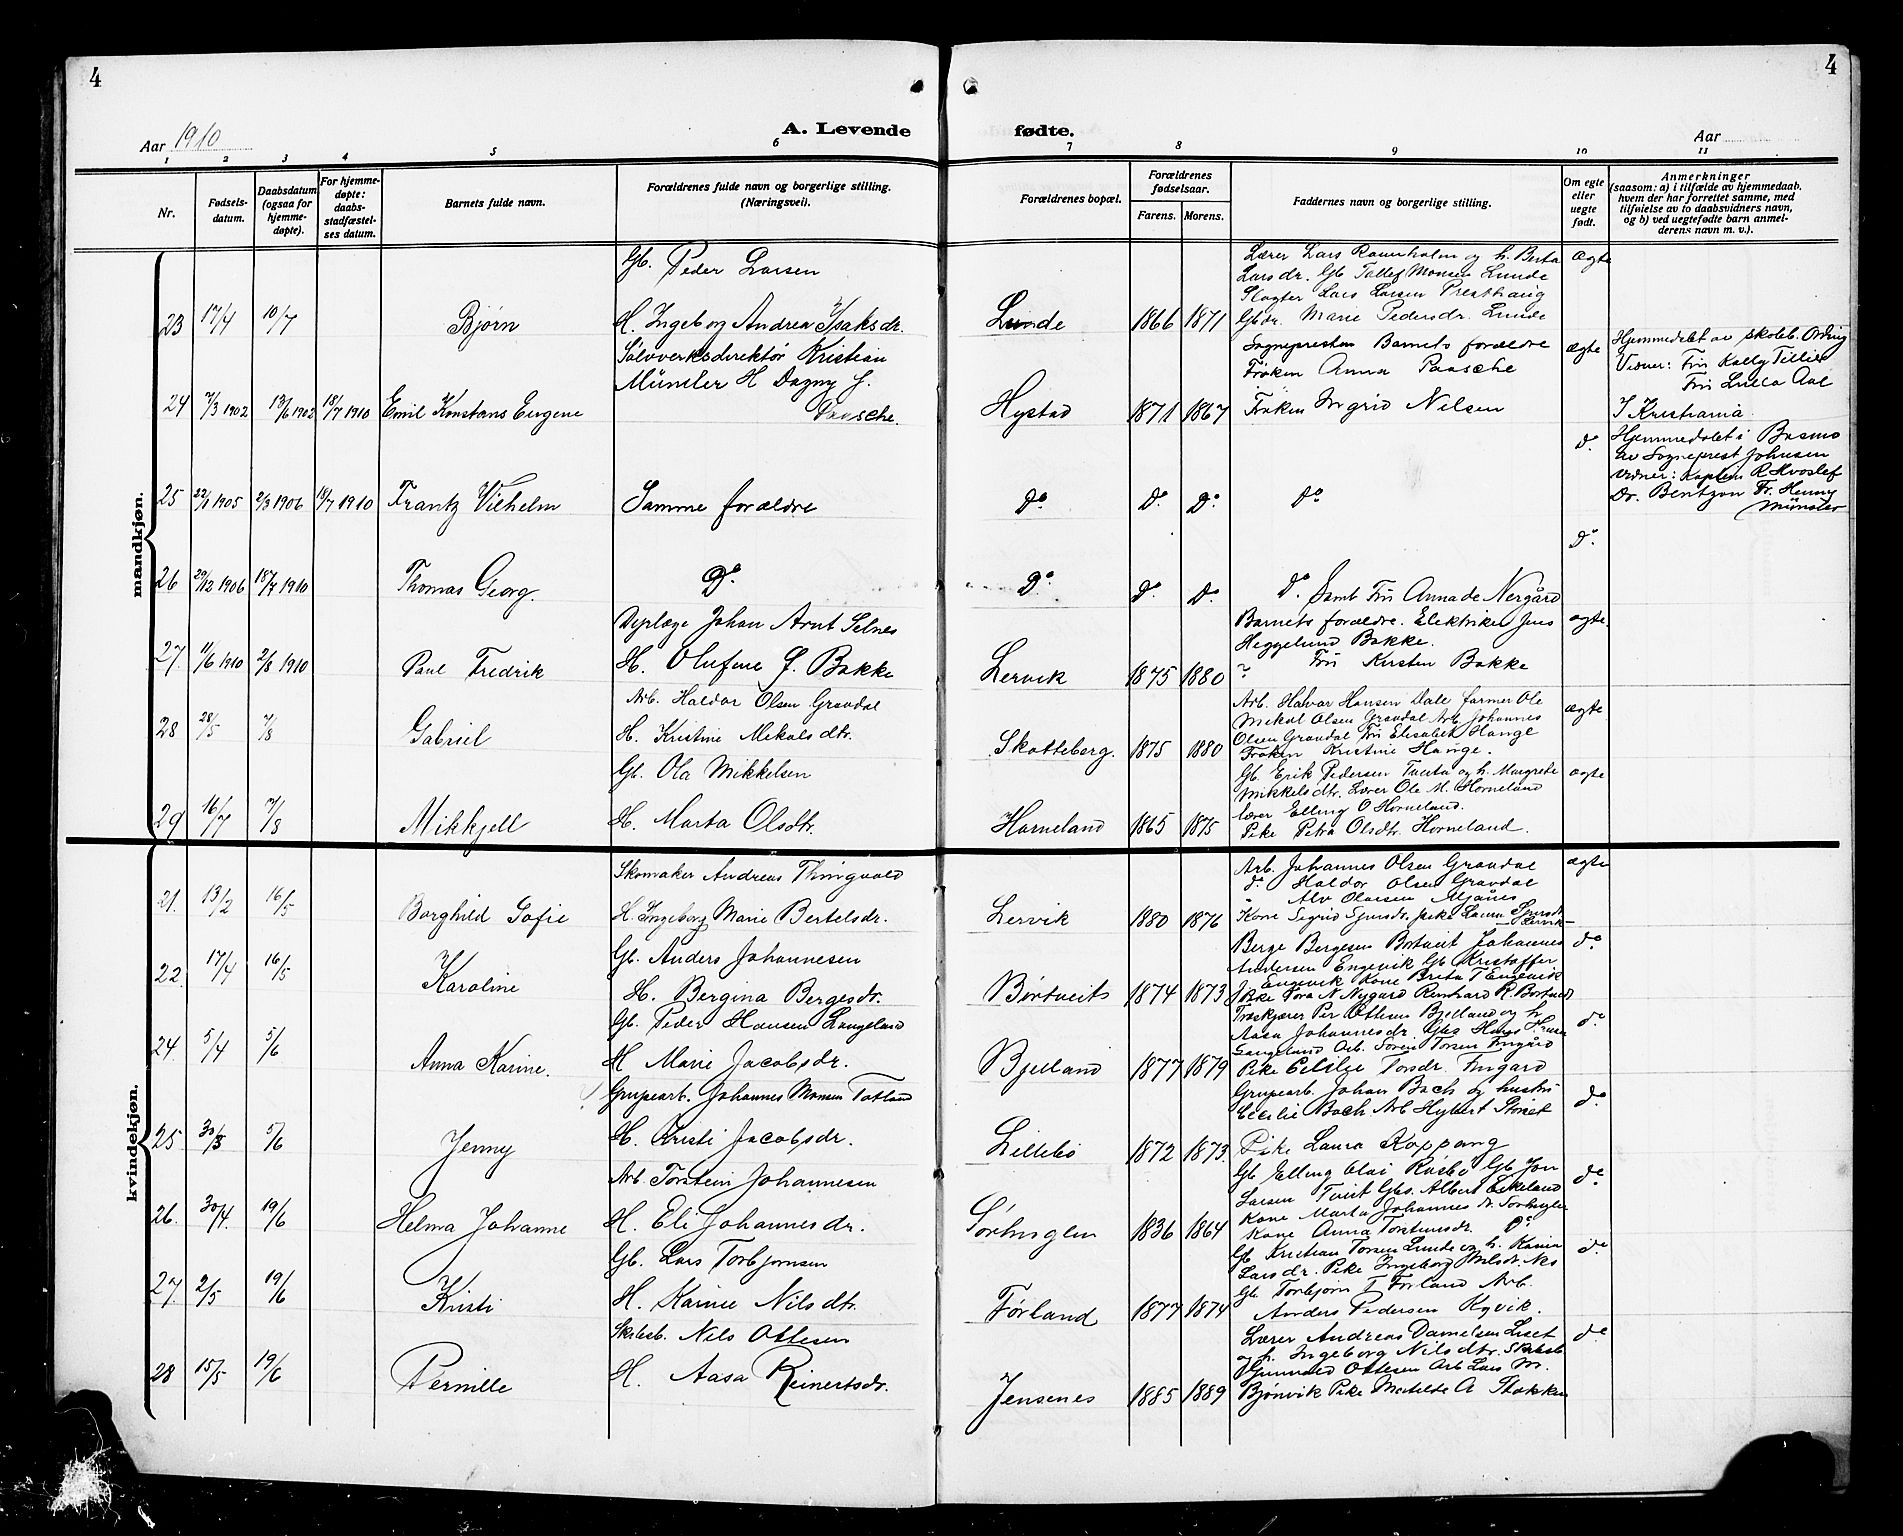 4
4
Aar 1910
A. Levende fødte.
Aar
1 2 3 4 5 6 7 8 9 10 11
Nr.
Fødsels-
datum.
Daabsdatum
(ogsaa for
hjemme-
døpte).
For hjemme-
døpte:
daabs-
stadfæstel-
ses datum.
Barnets fulde navn.
Forældrenes fulde navn og borgerlige stilling.
(Næringsvei).
Forældrenes bopæl.
Forældrenes
fødselsaar.
Farens. Morens.
Faddernes navn og borgerlige stilling.
Om egte
eller
uegte
født.
Anmerkninger
(saasom: a) i tilfælde av hjemmedaab,
hvem der har forrettet samme, med
tilføielse av to daabsvidners navn,
og b) ved uegtefødte barn anmel-
derens navn m. v.).
mandkjøn.
23 17/4 10/7 Bjørn
Gb. Peder Larsen
H. Ingeborg Andrea Ysaksdr.
Lunde 1866 1871
Lærer Lars Ravnholm og h. Berta
Larsdr. Gb Tollef Monsen Lunde
Slagter Lars Larsen Presthaug
Gbdr. Marie Pedersdr. Lunde
Ægte
24 7/3 1902 13/6 1902 18/7 1910 Emil Konstans Eugene
Sølvverksdirektør Kristian
Münster H Dagny f.
Paasche.
Hystad 1871 1867
Sognepresten Barnets forældre
Frøken Anna Paasche
Frøken Ingrid Nilsen
ægte
Hjemmedøbt av skoleb. Ording
Vidner: Fru Kally Tillier
Fru Lulla Aal
I Kristiania.
25 22/1 1905 2/3 1906 18/7 1910 Frantz Vilhelm
Samme forældre
Do Do. Do. Do
do.
Hjemmedøbt i Basmo
av Sogneprest Johnsen
Vidner: Kaptein R. Hvoslef
Dr. Bentzon Fr. Henny
Münster
26 29/12 1906 18/7 1910 Thomas Georg.
Do. Do. Do. Do.
Do. Samt Fru Anna de Nergård
Do.
27. 11/6 1910 2/8 1910 Paul Fredrik
Dyrlæge Johan Arnt Selnes
H. Olufine f. Bakke
Lervik 1875 1880
Barnets forældre. Elektriker Jens
Heggelund Bakke.
Fru Kirsten Bakke
?
ægte.
28 28/5 7/8 Gabriel
Arb. Haldor Olsen Gravdal
H. Kristine Mekalsdtr.
Skotteberg. 1875 1880
Arb. Halvor Hansen Dale farmer Ole
Mikal Olsen Gravdal Arb. Johannes
Olsen Gravdal Fru Elisabet Hauge
Frøken Kristine Hauge.
ægte
29 16/7 7/8 Mikkjell
Gb. Ola Mikkelsen
H. Marta Olsdtr.
Horneland 1865 1875
Gb. Erik Pedersen Tveita og h. Margrete
Mikkelsdtr. Lærer Ole M. Horneland
lærer Elling O Horneland.
Pike Petra Olsdtr. Horneland.
ægte
kvindekjøn.
21. 13/2 16/5 Borghild Sofie
Skomaker Andreas Thingvold
H. Ingeborg Marie Bertelsdr.
Lervik 1880 1876
Arb. Johannes Olsen Gravdal
do Haldor Olsen Gravdal
" Alv Olavsen
Kone Sigrid
ægte
22. 17/4 16/5 Karoline
Gb. Anders Johannesen
H. Bergina Bergesdr.
Børtveit 1874 1873
Berge Bergesen Børtveit Johannes
Andersen Engevik Gb Kristoffer
J Engevik Kone Brita T Engevik
Pike Tora N. Nygard Reinhard R. Børtveit
do
24. 5/4 5/6 Anna Karine.
Gb. Peder Hansen Langeland
H Marie Jacobsdr.
Bjelland 1877 1879
Træskjærer Per Ottesen Bjelland og h.
Aasa Johannesdr Gbs Hans Hansen
Langeland Arb. Søren Torsen Tungård
Pike Cecilie Torsdr.
do.
25 30/3 5/6 Jenny
Grupearb. Johannes Monsen Totland
H. Kristi Jacobsdr.
Lillebø 1872 1873.
Grupearb. Johan Bach og hustru
Cecilie Bach Arb Hybert Storet
Pike Laura Koppang
do.
26. 30/4 19/6 Helma Johanne
Arb. Torstein Johannesen
H. Eli Johannesdr.
Sørhuglen 1836 1864
Gb Elling Olai Røsbø Gb Jon
Larsen Tveit Gbs. Albert Eikeland
Kone Marta Johannesdr. Sørhuglen
Kone Anna Torsteinsdr. Do
do
27. 2/5 19/6 Kristi
Gb. Lars Torbjørnsen
H. Karine Nilsdtr.
Førland 1877 1874
Gb Kristian Torsen Lunde og h. Karina
Larsdr. Pike Ingeborg Nilsdr. Nes
Gb Torbjørn T Førland Arb.
Anders Pedersen Kyvik.
do
28 15/5 19/6 Pernille
Skibsb. Nils Ottesen
H. Aasa Reinertsdr.
Jensenes 1885 1889
Lærer Andreas Danielsen Liset
og h. Ingeborg Nilsdtr. Skibsb
Gunnuld Ottesen Arb Lars M.
Bjønvik Pike Matilde A Stokken
do